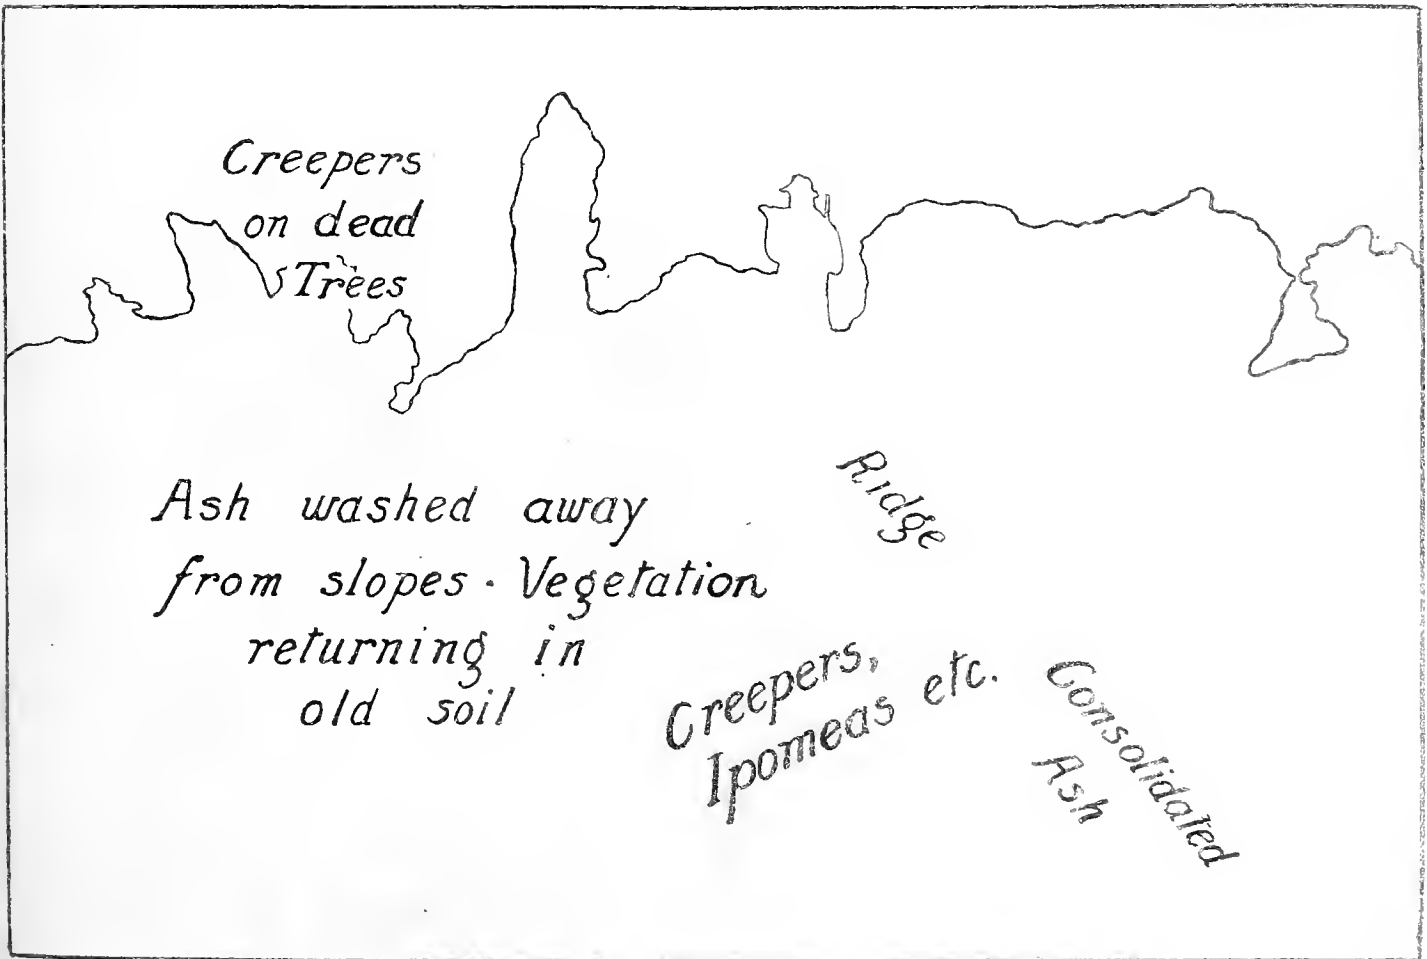 Creepers
on dead
Trees
Ash washed away
from slopes · Vegetation
returning in
old soil
Ridge
Creepers,
Ipomeas etc.
Consolidated
Ash